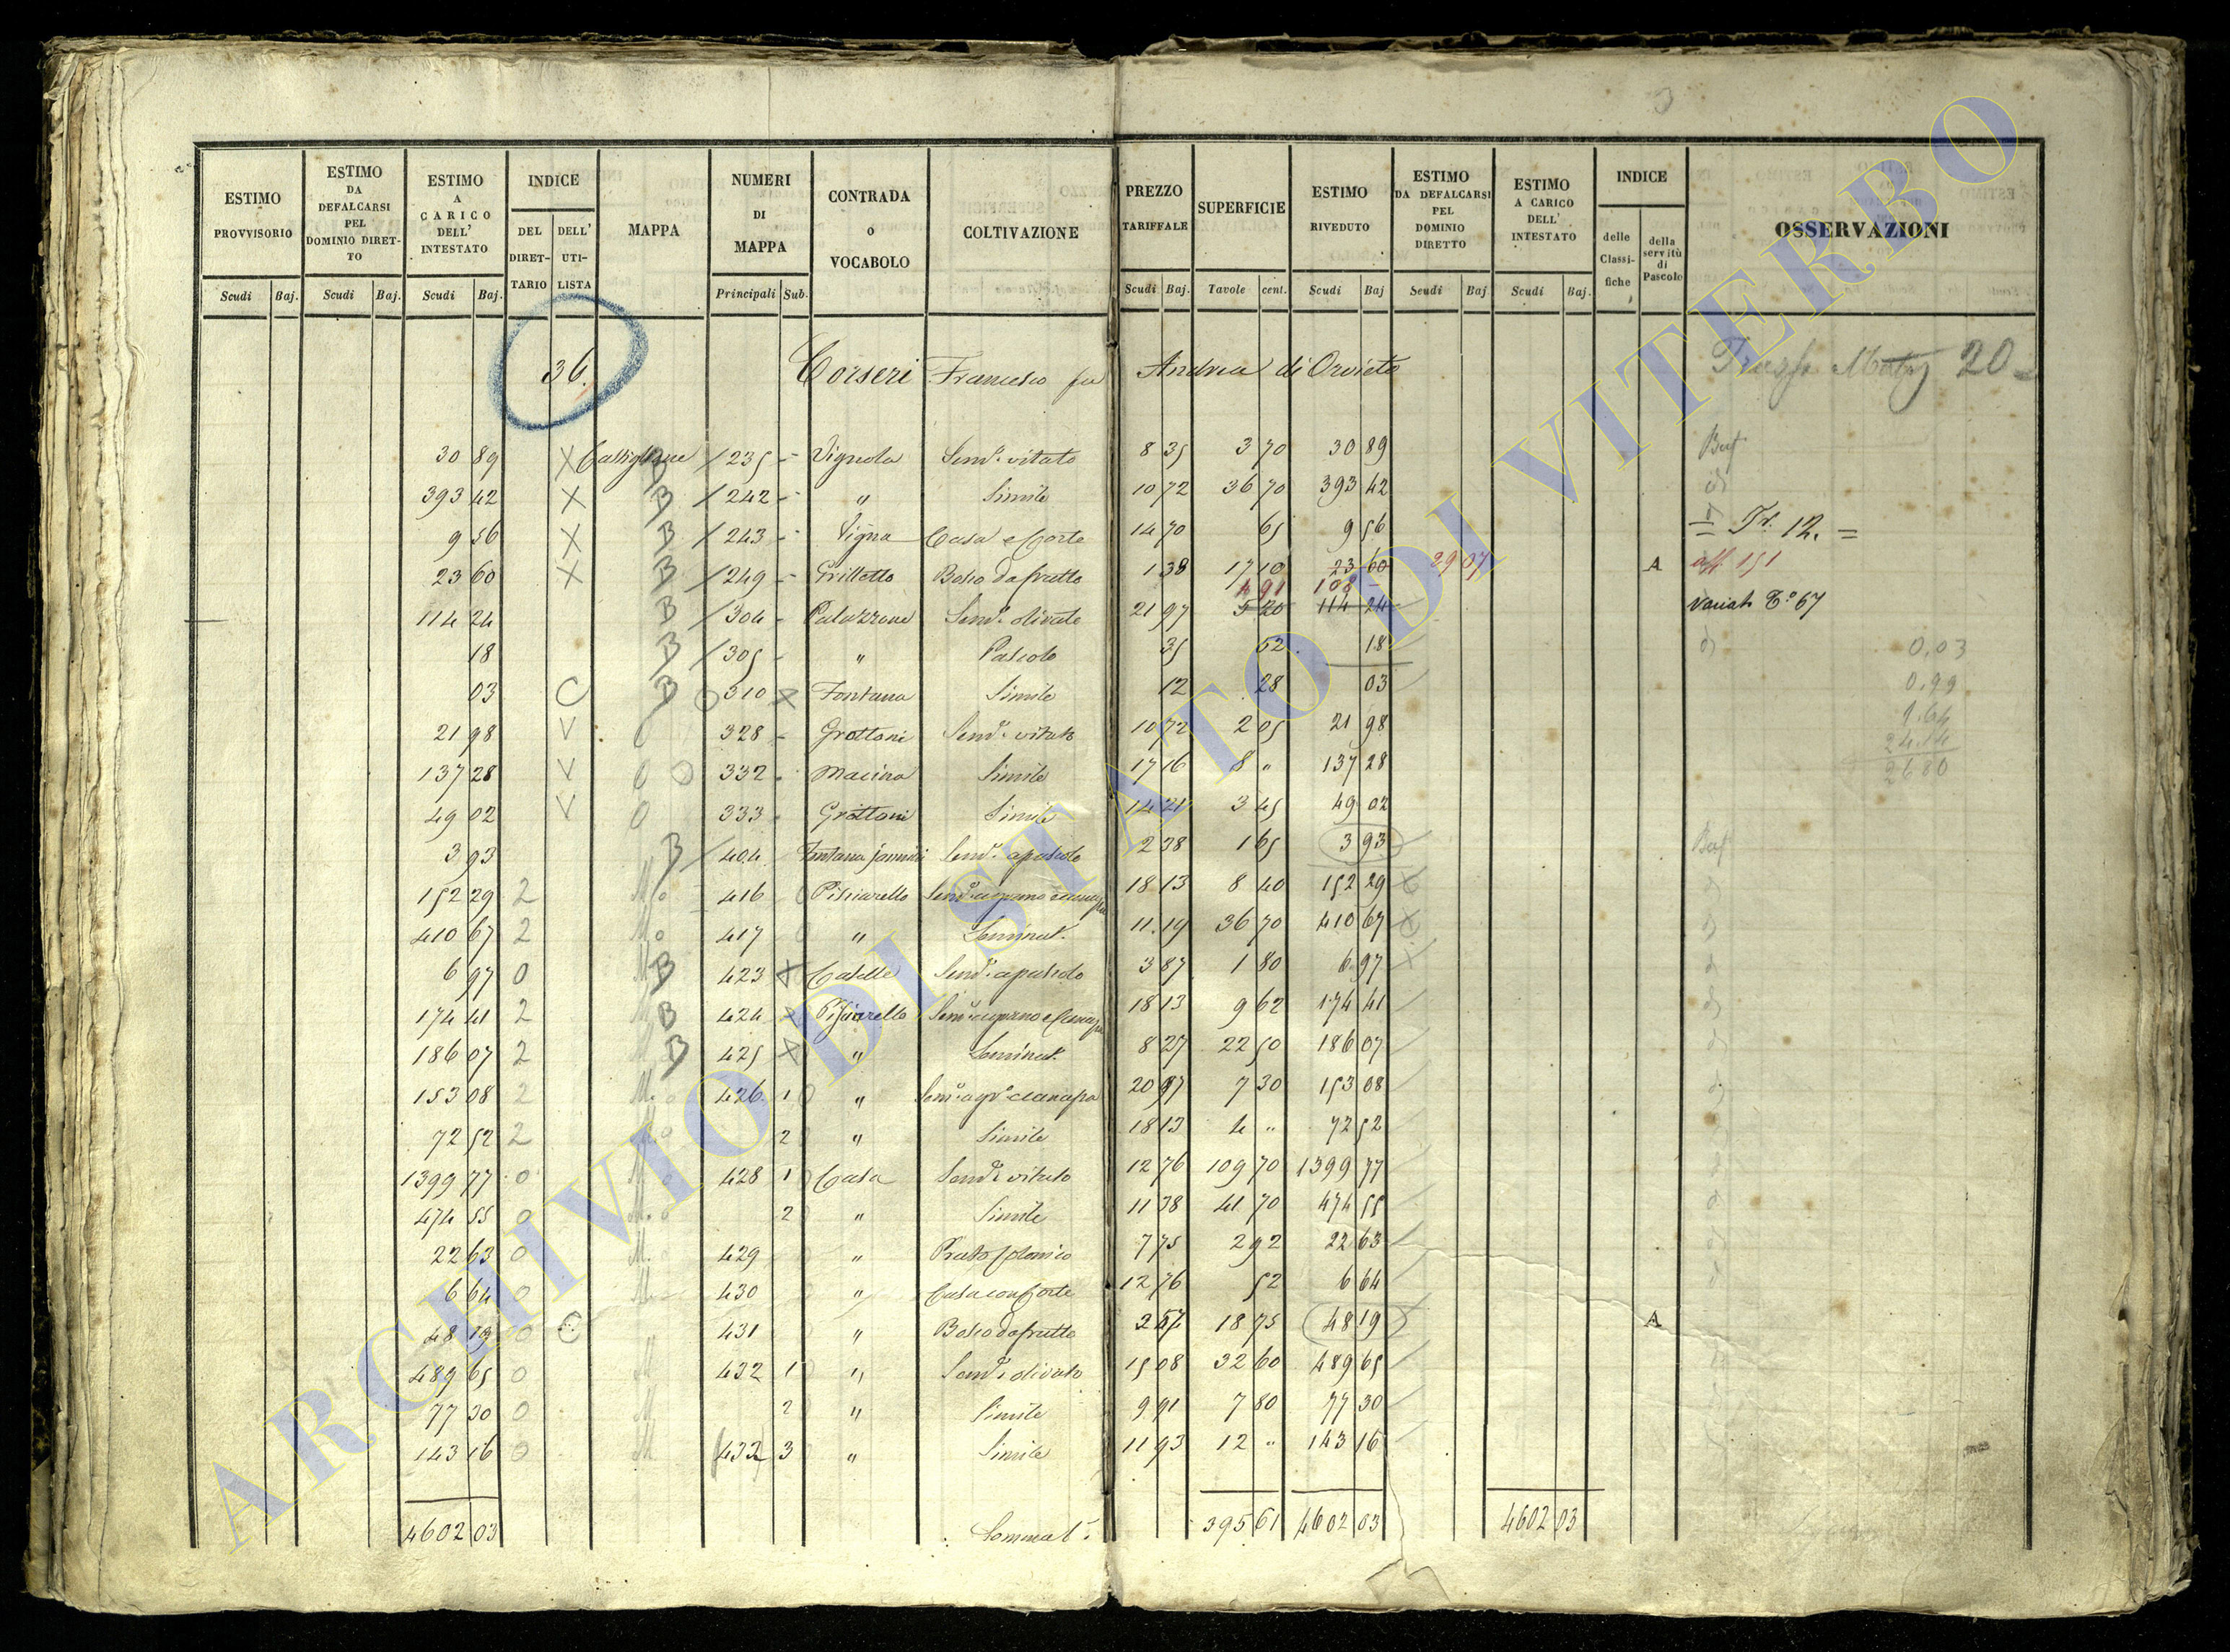 ESTIMO PROVVISORIO Scudi Baj.
ESTIMO DA DEFALCARSI PEL DOMINIO DIRETTO Scudi Baj.
ESTIMO A CARICO DELL' INTESTATO Scudi Baj.
INDICE DEL DIRETTARIO DELL' UTILISTA
MAPPA
NUMERI DI MAPPA Principali Sub.
CONTRADA o VOCABOLO
COLTIVAZIONE
PREZZO TARIFFALE Scudi Baj.
SUPERFICIE Tavole cent.
ESTIMO RIVEDUTO Scudi Baj
ESTIMO DA DEFALCARSI PEL DOMINIO DIRETTO Scudi Baj
ESTIMO A CARICO DELL' INTESTATO Scudi Baj.
INDICE delle Classifiche della servitù di Pascolo
OSSERVAZIONI
36. Corseri Francesco fu Andrea di Orvieto 20
30 89 X Castiglione B /235 - Vignola Sem.o vitato 8 35 3 70 30 89
393 42 X B /242 - " Simile 10 72 36 70 393 42
9 56 X B /243 - Vigna Casa e Corte 14 70 65 9 56 = Tr. 12. =
23 60 X B /249 - Grilletto Bosco da frutto 1 38 17 10 23 60 29 07 A aff. 151
4 91 108 -
114 24 B /304 - Palazzone Sem.o olivato 21 97 5 20 114 24 variato T.o 67
18 B /305 - " Pascolo 35 52 18 0.03
03 C B 310 X Fontana Simile 12 28 03 0.99
21 98 V 0 328 - Grottoni Sem.o vitato 10 72 2 05 21 98 1.64
24.14
137 28 V 0 332 - Macina Simile 17 16 8 " 137 28 2680
49 02 V 0 333 - Grottoni Simile 14 21 3 45 49 02
3 93 B /404 Fontana Sem.o a pascolo 2 38 1 65 3 93
152 29 2 M 416 Pisciarello 18 13 8 40 152 29
410 67 2 M 417 " Seminat. 11.19 36 70 410 67
6 97 0 B 423 X Caselle Sem.o a pascolo 3 87 1 80 6 97
174 41 2 B 424 X Pisciarello 18 13 9 62 174 41
186 07 2 B 425 X " Seminat. 8 27 22 50 186 07
153 08 2 M. 426. 1 " 20 97 7 30 153 08
72 52 2 2 " Simile 18 13 4 " 72 52
1399 77 0 M 428 1 Casa Sem.o vitato 12 76 109 70 1399 77
474 55 0 M. 2 " Simile 11 38 41 70 474 55
22 63 0 M. 429 " Prato 7 75 2 92 22 63
6 64 0 M 430 " Casa con Corte 12 76 52 6 64
48 19 0 C M 431 " Bosco da frutto 2 57 18 75 48 19 A
489 65 0 M 432 1 " Sem.o olivato 15 08 32 60 489 65
77 30 0 M 2 " Simile 9 91 7 80 77 30
143 16 0 M 432 3 " Simile 11 93 12 " 143 16
4602 03 395 61 4602 03 4602 03
ARCHIVIO DI STATO DI VITERBO